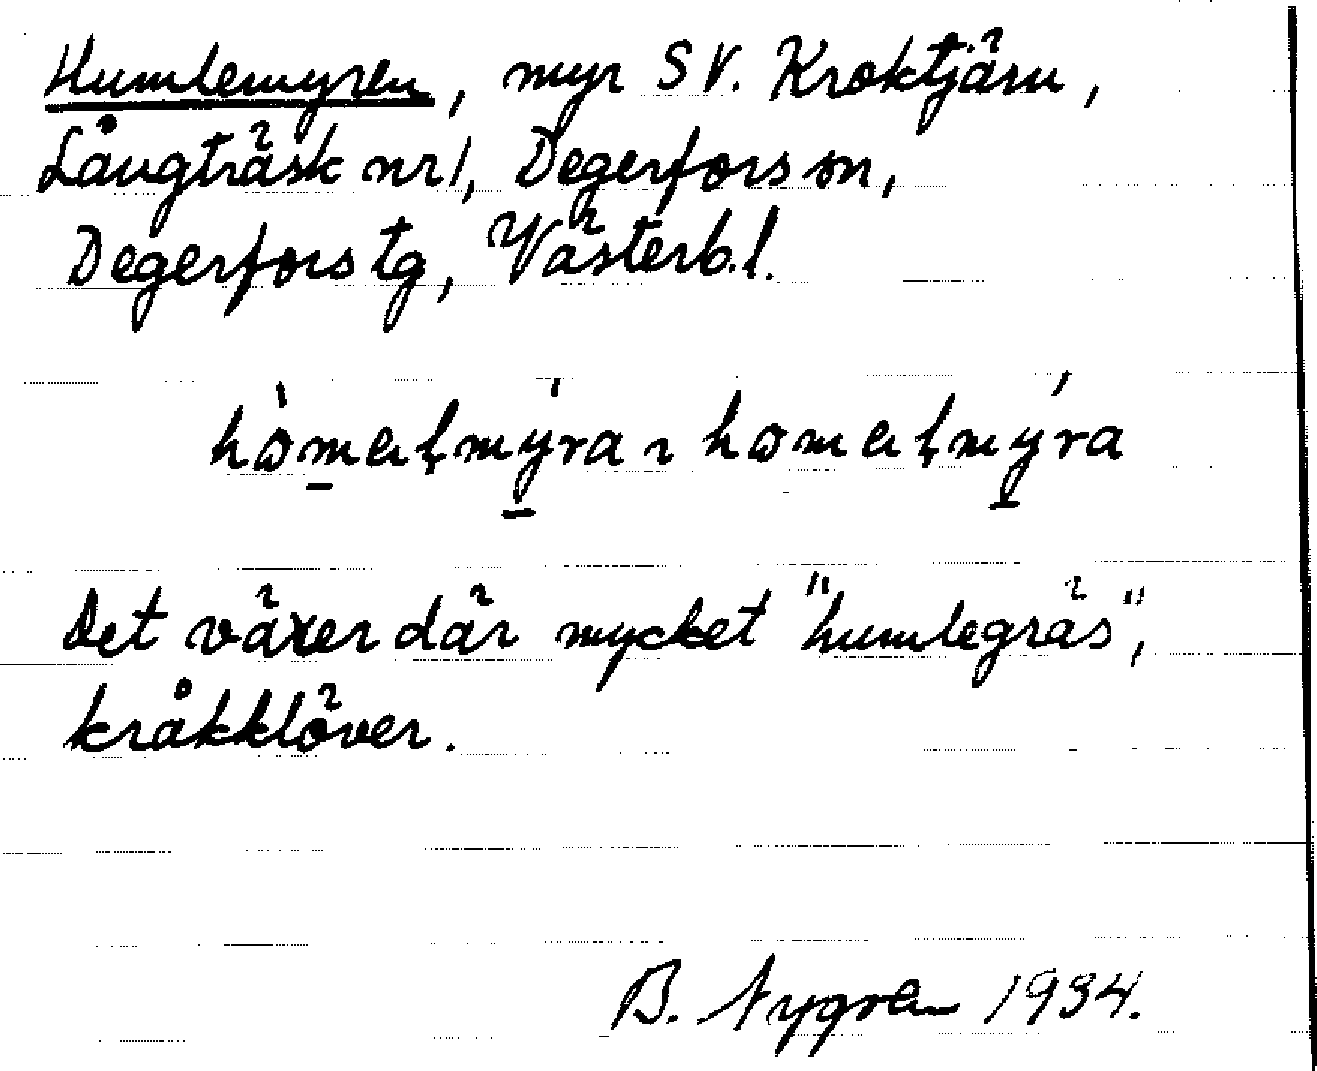 Humlemyren, myr SV. Kroktjärn,
Långträsk nr 1, Degerfors sn,
Degerfors tg, Västerb. l.
hòmaɭmy̌ra ɿ homaɭmýra
Det växer där mycket "humlegräs",
kråkklöver.
B. Nygren 1934.